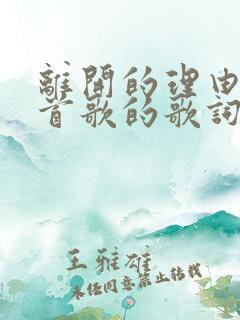 離開的理由
首歌的歌詞
王雅雄
未经同意禁止转载